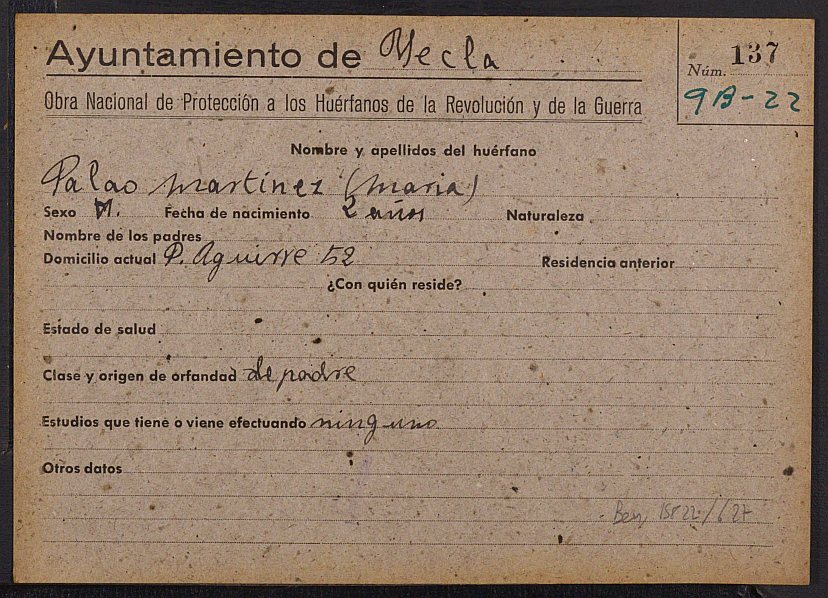 Ayuntamiento de Yecla
Núm. 137
9B-22
Obra Nacional de Protección a los Huérfanos de la Revolución y de la Guerra
Nombre y apellidos del huérfano
Palao Martínez (Maria)
Sexo M. Fecha de nacimiento 2 años Naturaleza
Nombre de los padres
Domicilio actual P. Aguirre 52 Residencia anterior
¿Con quién reside?
Estado de salud
Clase y origen de orfandad de padre
Estudios que tiene o viene efectuando ninguno
Otros datos